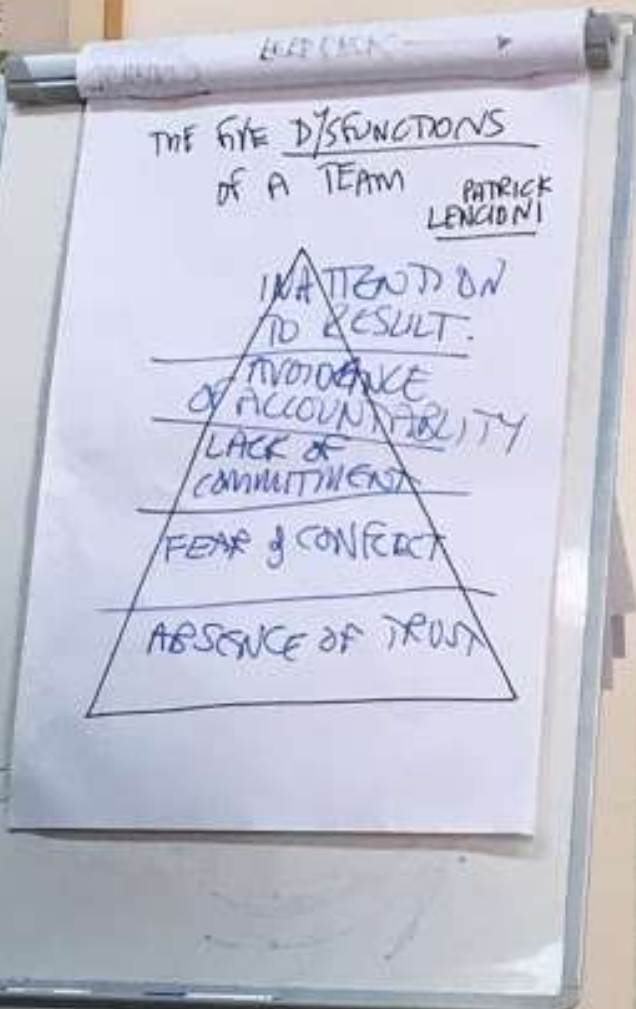 THE FIVE DYSFUNCTIONS
OF A TEAM
PATRICK
LENCIONI
INATTENTION
TO RESULT.
AVOIDANCE
OF ACCOUNTABILITY
LACK OF
COMMITMENT
FEAR of CONFLICT
ABSENCE OF TRUST